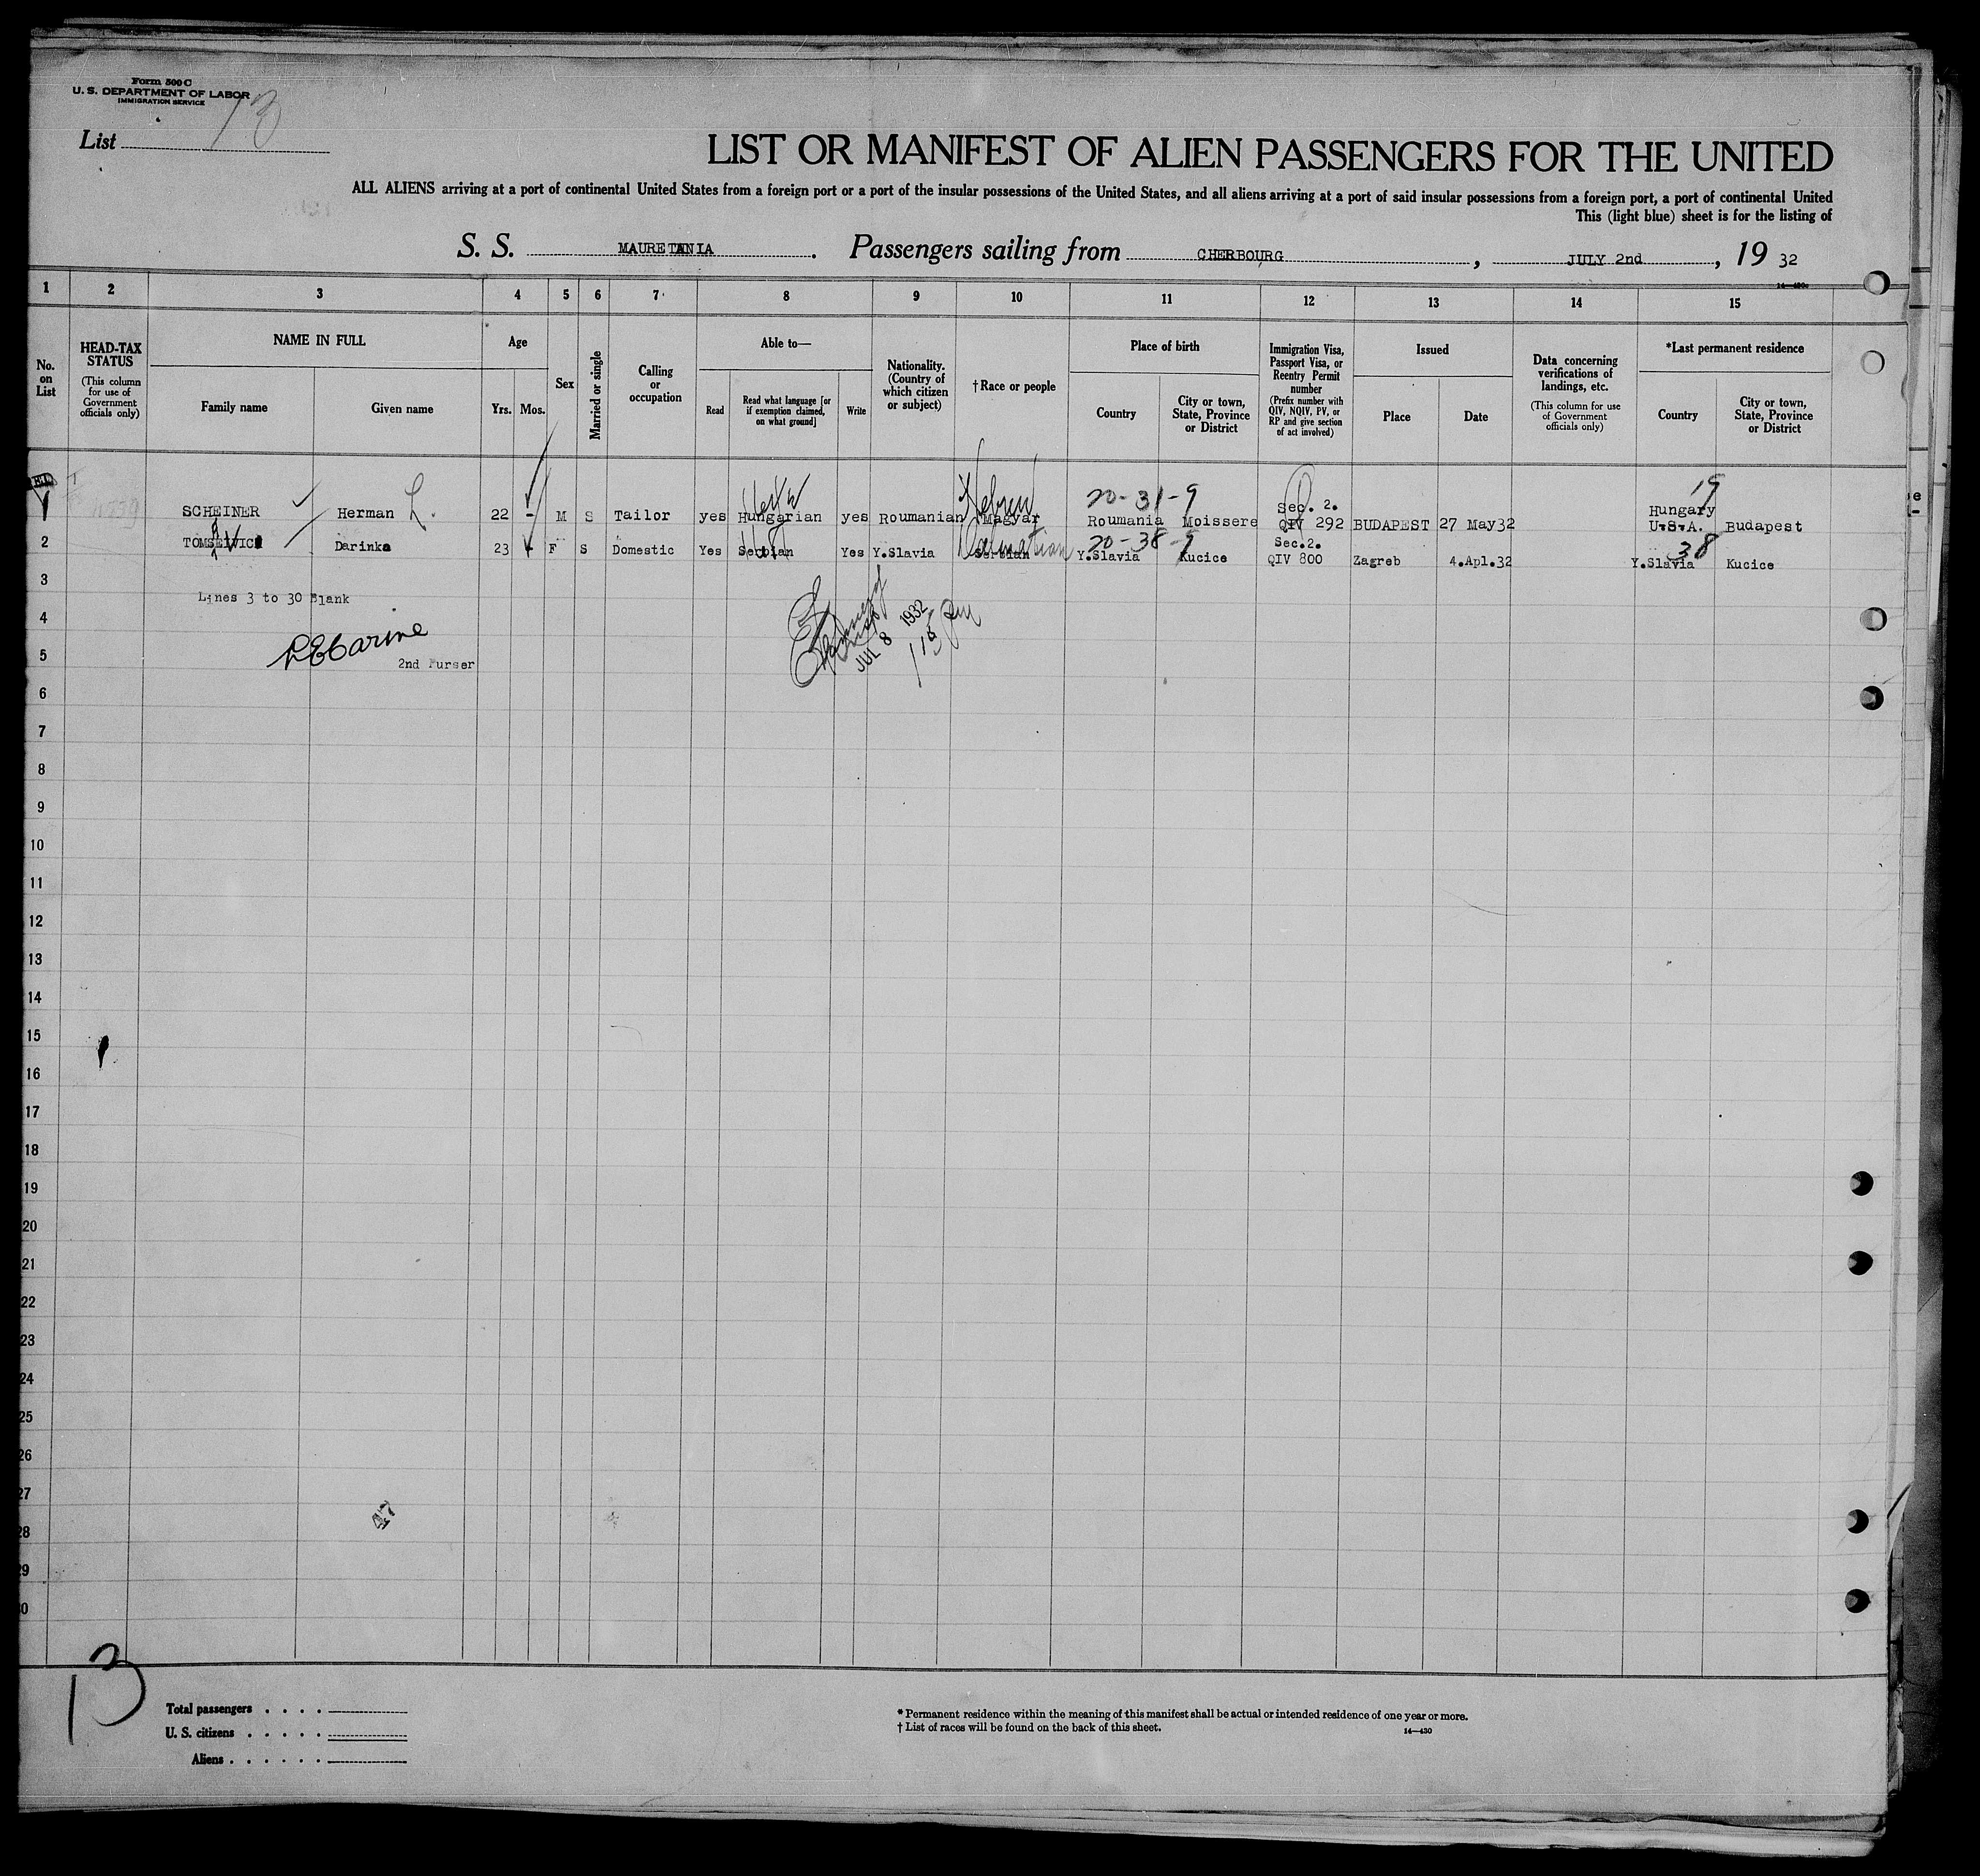 Form 500 C
U. S. DEPARTMENT OF LABOR
IMMIGRATION SERVICE
List 13
LIST OR MANIFEST OF ALIEN PASSENGERS FOR THE UNITED
ALL ALIENS arriving at a port of continental United States from a foreign port or a port of the insular possessions of the United States, and all aliens arriving at a port of said insular possessions from a foreign port, a port of continental United
This (light blue) sheet is for the listing of
S. S. MAURETANIA. Passengers sailing from CHERBOURG, JULY 2nd, 19 32
1 2 3 4 5 6 7 8 9 10 11 12 13 14 15
No. on List
HEAD-TAX STATUS (This column for use of Government officials only)
NAME IN FULL
Family name Given name
Age
Yrs. Mos.
Sex
Married or single
Calling or occupation
Able to—
Read Read what language [or if exemption claimed, on what ground] Write
Nationality. (Country of which citizen or subject)
†Race or people
Place of birth
Country City or town, State, Province or District
Immigration Visa, Passport Visa, or Reentry Permit number (Prefix number with QIV, NQIV, PV, or RP and give section of act involved)
Issued
Place Date
Data concerning verifications of landings, etc. (This column for use of Government officials only)
*Last permanent residence
Country City or town, State, Province or District
Hebrew 20-31-9 Sec. 2. 19 Hungary
1 SCHEINER Herman L. 22 - M S Tailor yes Hungarian yes Roumanian Magyar Roumania Moissere QIV 292 BUDAPEST 27 May32 U.S.A. Budapest
Dalmatian 20-38-9 Sec.2. 38
2 Darinka 23 F S Domestic Yes Serbian Yes Y.Slavia Serbian Y.Slavia Kucice QIV 800 Zagreb 4.Apl.32 Y.Slavia Kucice
3
Lines 3 to 30 Blank
4
5
2nd Purser
JUL 8 1932
6
7
8
9
10
11
12
13
14
15
16
17
18
19
20
21
22
23
24
25
26
27
47
28
29
30
13
Total passengers . . . .
U. S. citizens . . . . .
Aliens . . . . . .
* Permanent residence within the meaning of this manifest shall be actual or intended residence of one year or more.
† List of races will be found on the back of this sheet.
14—430